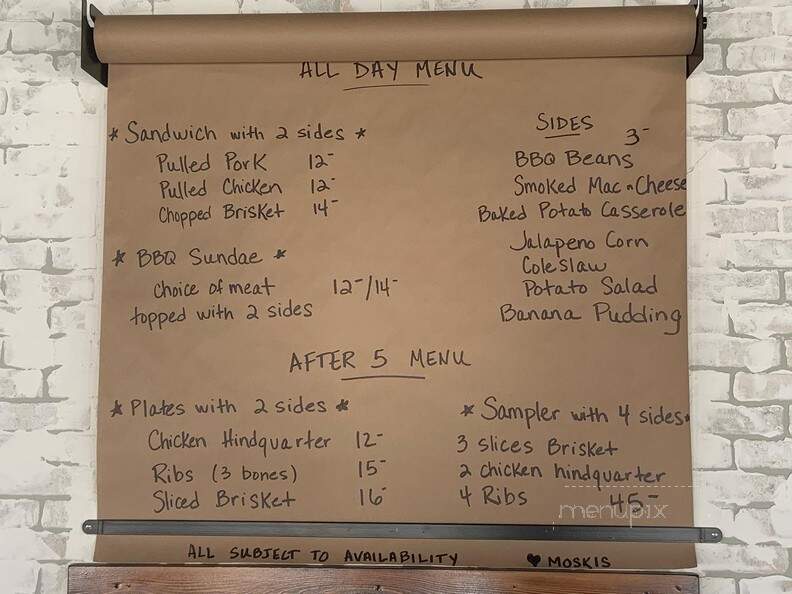 ALL DAY MENU
* Sandwich with 2 sides *
Pulled Pork 12-
Pulled Chicken 12-
Chopped Brisket 14-
* BBQ Sundae *
choice of meat 12-/14-
topped with 2 sides
SIDES 3-
BBQ Beans
Smoked Mac n Cheese
Baked Potato Casserole
Jalapeno Corn
Coleslaw
Potato Salad
Banana Pudding
AFTER 5 MENU
* Plates with 2 sides *
Chicken Hindquarter 12-
Ribs (3 bones) 15-
Sliced Brisket 16-
* Sampler with 4 sides*
3 slices Brisket
2 chicken hindquarter
4 Ribs 45-
menupix
ALL SUBJECT TO AVAILABILITY ♥ MOSKIS